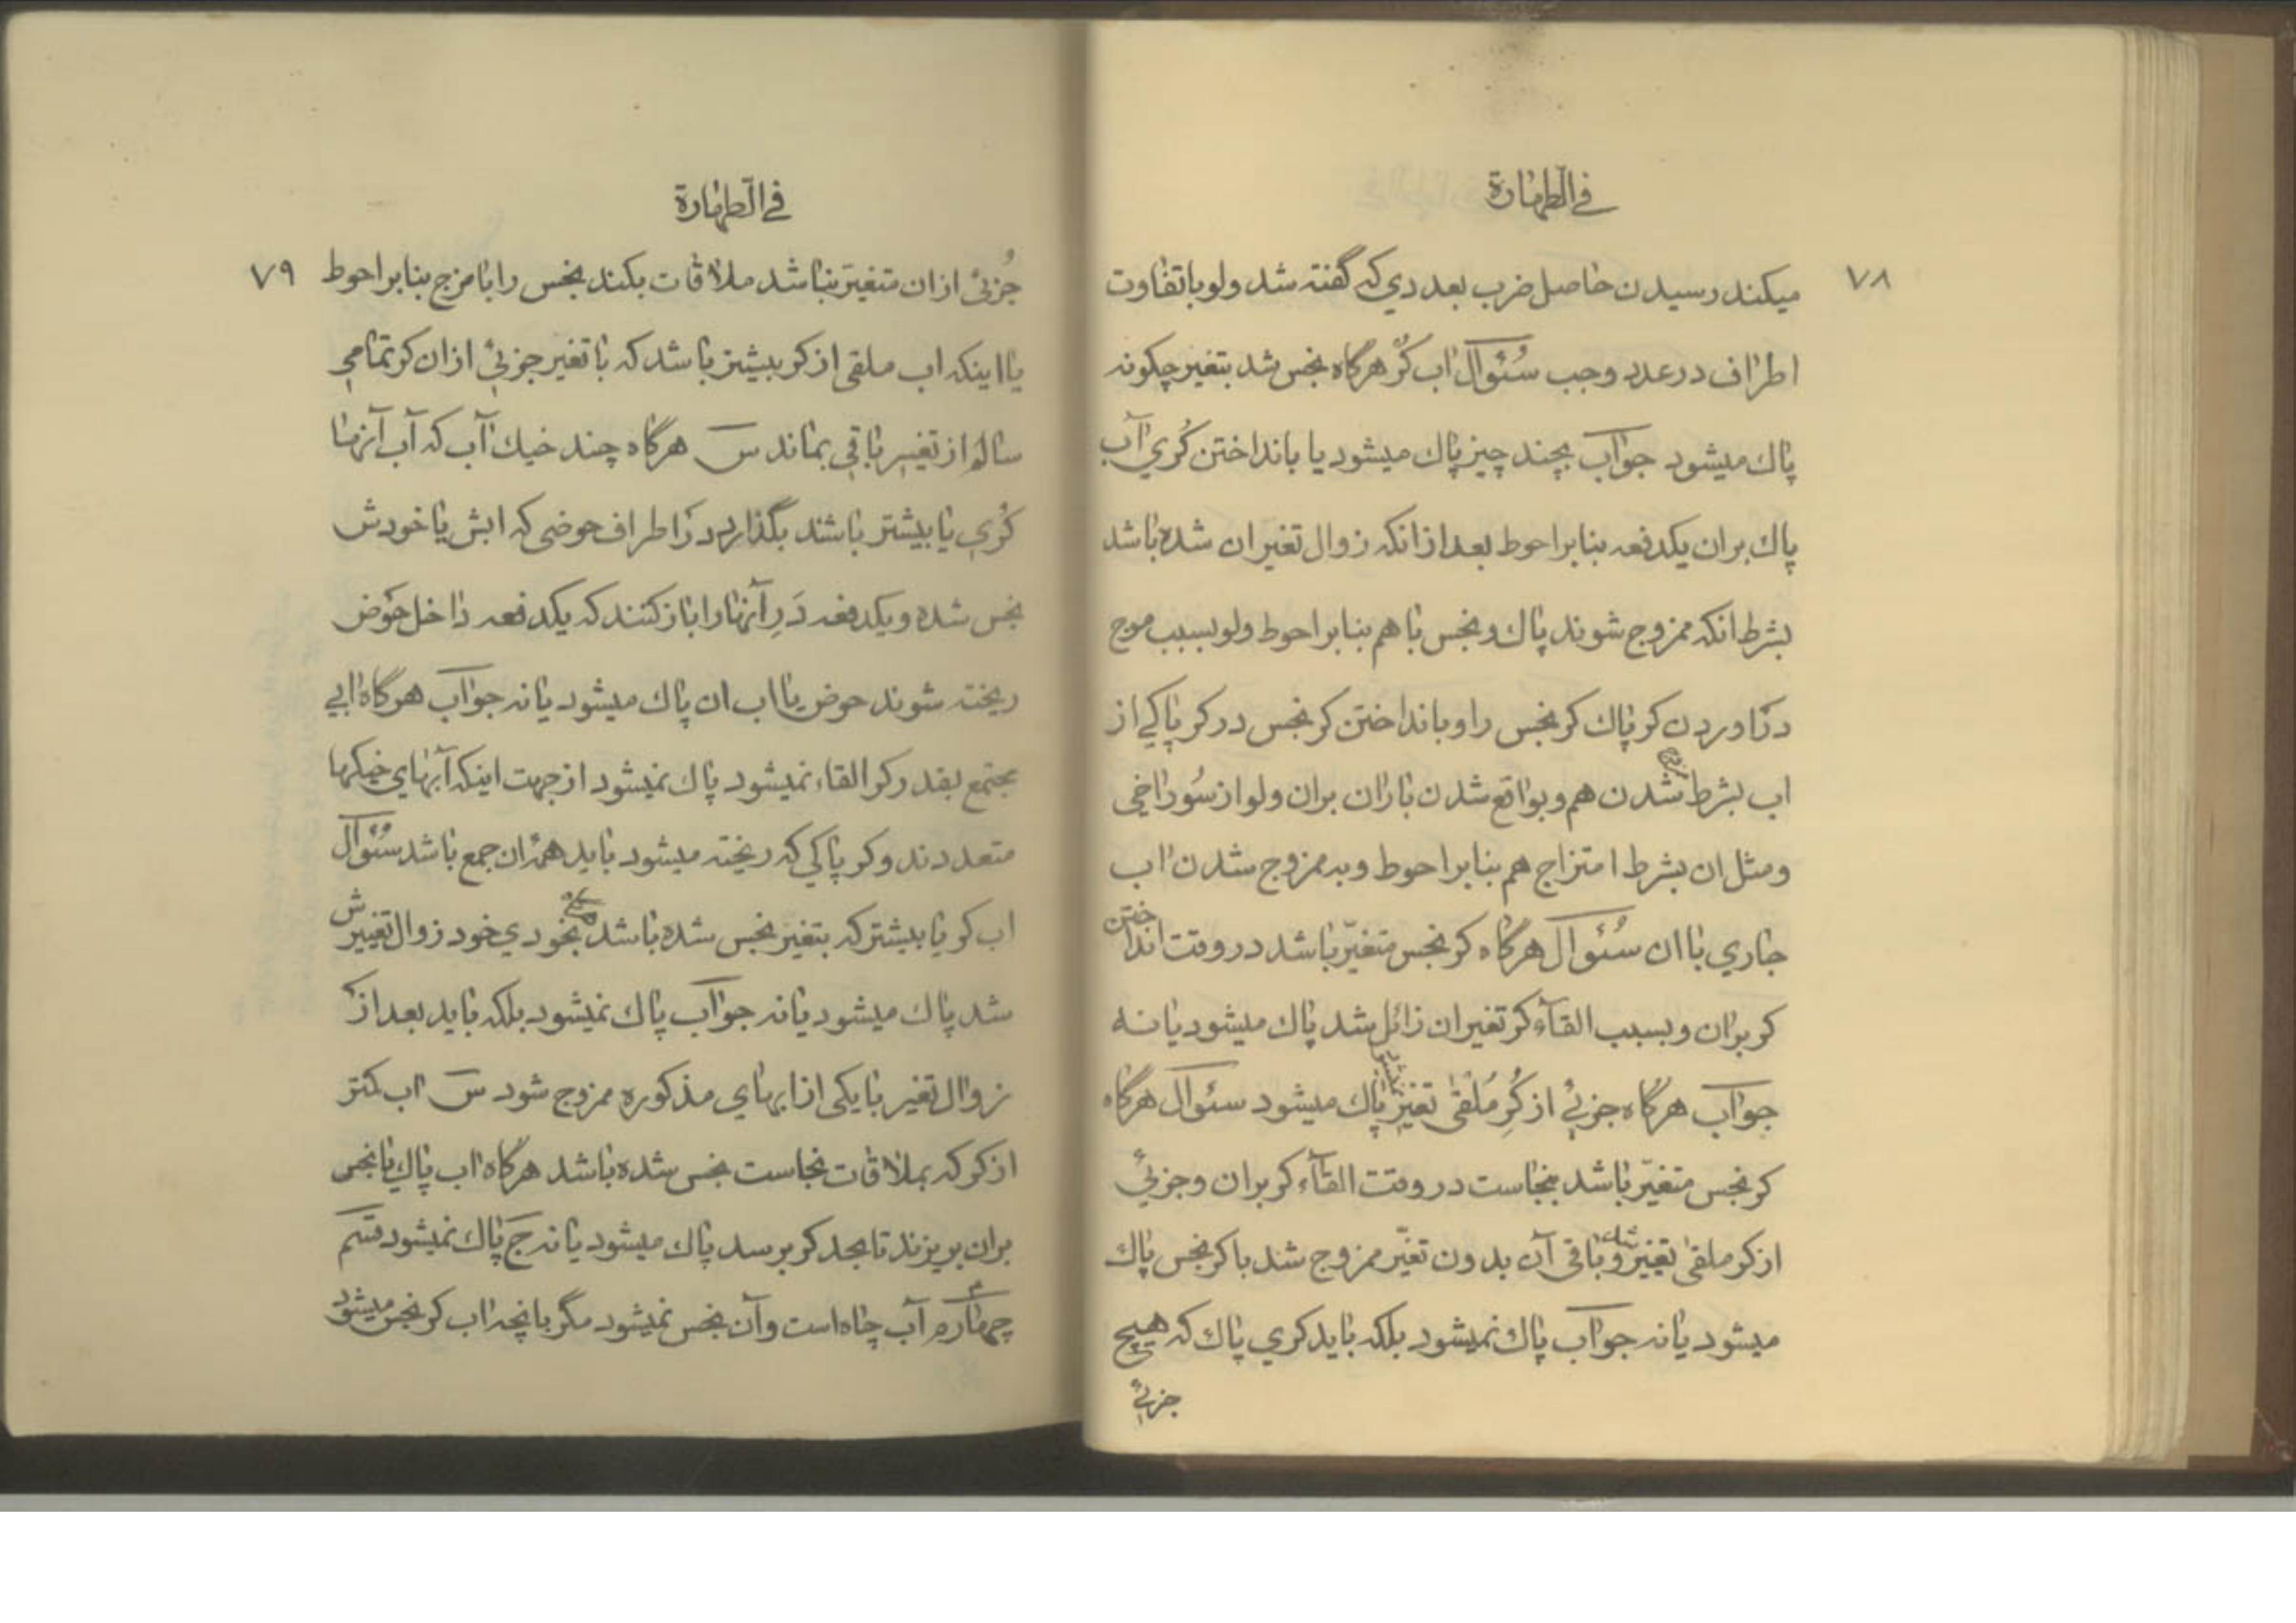 في الطهارة
۷۸
میکند رسیدن حاصل ضرب بعددی که گفته شد ولو با تفاوت
اطراف در عدد وجب سُئوال اب کُر هرگاه نجس شد بتغیر چکونه
پاك میشود جواب بچند چیز پاك میشود یا بانداختن کُري آب
پاك بران یکدفعه بنابر احوط بعد از انکه زوال تغیر ان شده باشد
بشرط انکه ممزوج شوند پاك و نجس با هم بنابر احوط ولو بسبب موج
دراوردن کر پاك کر نجس را و بانداختن کر نجس در کر پاکي از
اب بشرط شدن هم و بواقع شدن باران بران ولو از سُوراخي
ومثل ان بشرط امتزاج هم بنابر احوط و به ممزوج شدن اب
جاري با ان سُئوال هرگاه کر نجس متغیّر باشد در وقت انداختن
کر بران و بسبب القآء کر تغیر ان زائل شد پاك میشود یا نه
جواب هرگاه جزئي از کُرِ مُلقیٰ تغیر نیابد پاك میشود سئوال هرگاه
کر نجس متغیّر باشد بنجاست در وقت القآء کر بران و جزئي
از کر ملقیٰ تغییر شد و باقی آن بدون تغیّر ممزوج شد با کر نجس پاك
میشود یا نه جواب پاك نمیشود بلکه باید کري پاك که هیچ
جزئي
في الطهارة
۷۹
جُزئي از ان متغیّر نباشد ملاقات بکند نجس را با مزج بنابر احوط
یا اینکه اب ملقی از کر بیشتر باشد که با تغیر جزئي از ان کر تمامي
سالم از تغییر باقي بماند س هرگاه چند خیك آب که آب آنها
کُري یا بیشتر باشد بگذارد در اطراف حوضی که ابش یا خودش
نجس شده و یکدفعه دَرِ آنها را باز کنند که یکدفعه داخل حَوض
ریخته شوند حوض یا اب ان پاك میشود یا نه جواب هرگاه ابي
مجتمع بقدر کر القاء نمیشود پاك نمیشود از جهت اینکه آبهاي خیکها
متعددند و کر پاکي که ریخته میشود باید همهٔ ان جمع باشد سُئوال
اب کر یا بیشتر که بتغیر نجس شده باشد هرگاه بخودي خود زوال تغییرش
شد پاك میشود یا نه جواب پاك نمیشود بلکه باید بعد از
زوال تغیر با یکی از ابهاي مذکوره ممزوج شود س اب کمتر
از کر که بملاقات نجاست نجس شده باشد هرگاه اب پاك یا نجس
بران بریزند تا بحد کر برسد پاك میشود یا نه ج پاك نمیشود قسم
چهارم آب چاه است و آن نجس نمیشود مگر بانچه اب کر نجس میشود